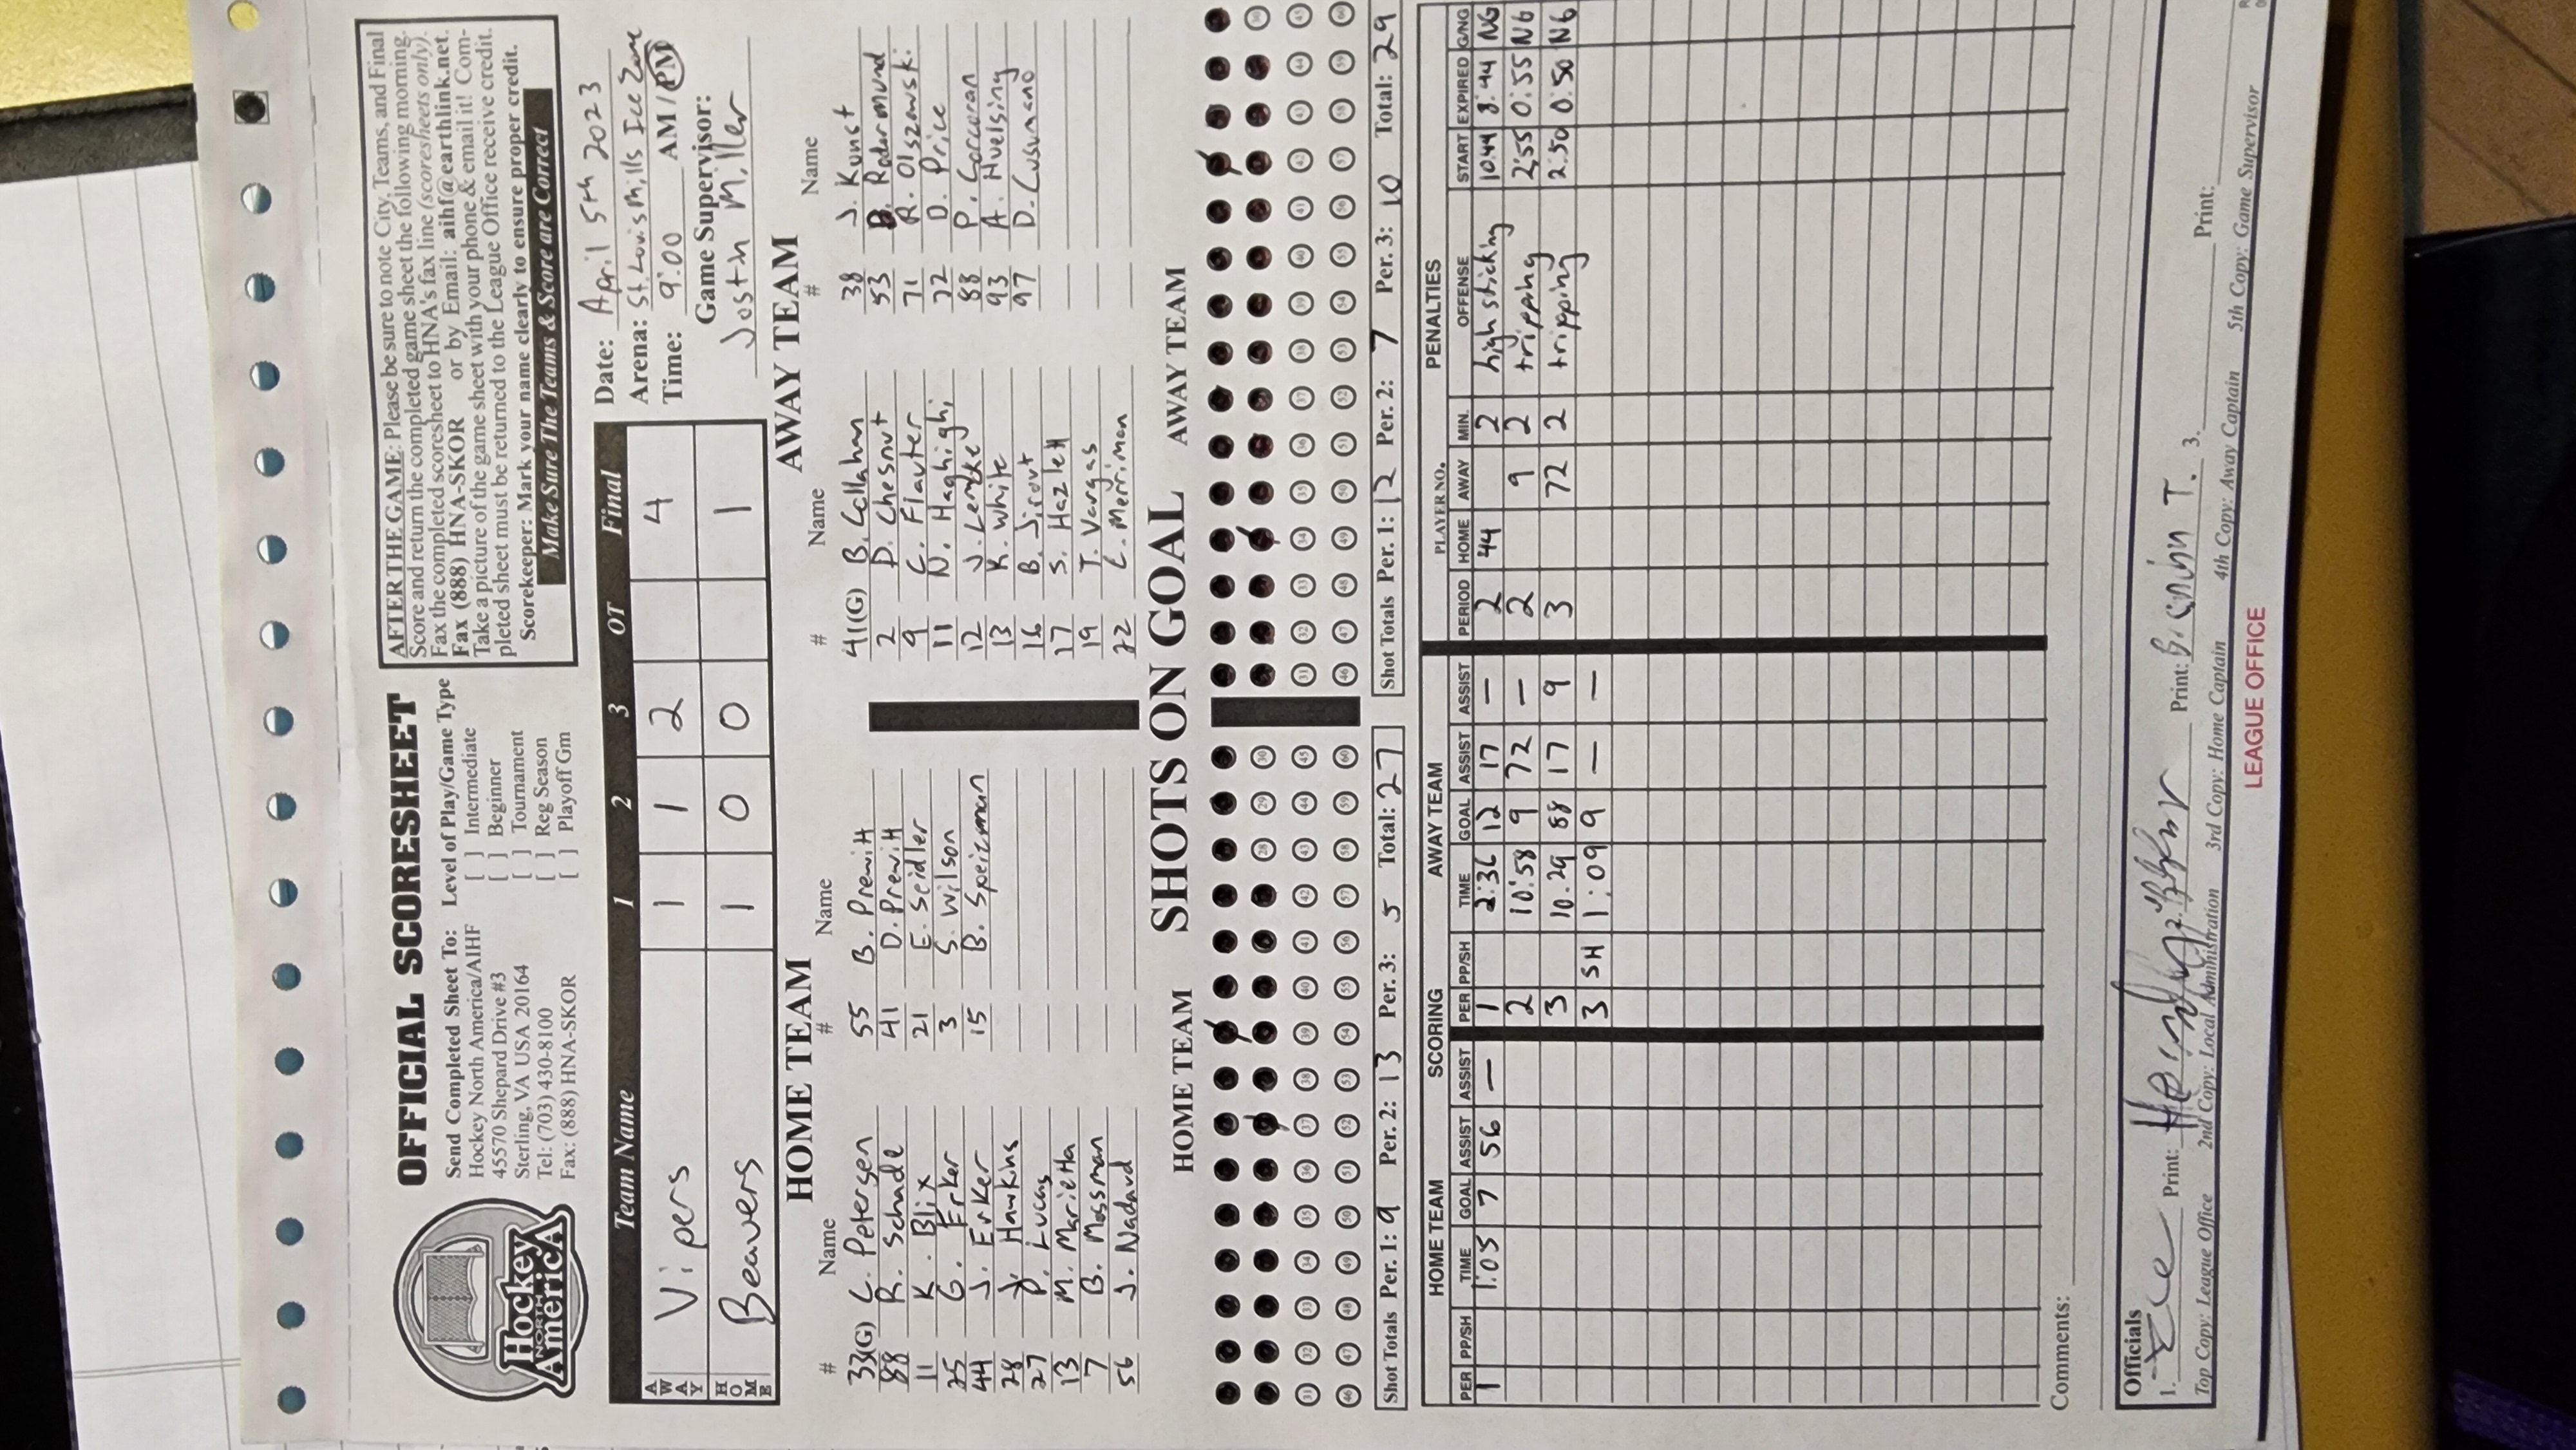 OFFICIAL SCORESHEET
Hockey
NORTH
America
Send Completed Sheet To:
Hockey North America/AIHF
45570 Shepard Drive #3
Sterling, VA USA 20164
Tel: (703) 430-8100
Fax: (888) HNA-SKOR
Level of Play/Game Type
[ ] Intermediate
[ ] Beginner
[ ] Tournament
[ ] Reg Season
[ ] Playoff Gm
AFTER THE GAME: Please be sure to note City, Teams, and Final
Score and return the completed game sheet the following morning.
Fax the completed scoresheet to HNA's fax line (scoresheets only).
Fax (888) HNA-SKOR or by Email: aihf@earthlink.net.
Take a picture of the game sheet with your phone & email it! Com-
pleted sheet must be returned to the League Office receive credit.
Scorekeeper: Mark your name clearly to ensure proper credit.
Make Sure The Teams & Score are Correct
Team Name 1 2 3 OT Final
AWAY Vipers 1 1 2 4
HOME Beavers 1 0 0 1
Date: April 5th 2023
Arena: St. Louis Mills Ice Zone
Time: 9:00 AM / PM
Game Supervisor:
Justin Miller
HOME TEAM
# Name # Name
33(G) C. Petersen 55 B. Prewitt
88 R. Schade 41 D. Prewitt
11 K. Blix 21 E. Seidler
25 G. Erker 3 S. Wilson
44 J. Erker 15 B. Speizman
28 J. Hawkins
27 P. Lucas
13 M. Marietta
7 B. Mossman
56 J. Nadaud
AWAY TEAM
# Name # Name
41(G) B. Callahan 38 J. Kunst
2 D. Chesnut 53 B. Radermund
9 C. Flauter 71 R. Olszowski
11 N. Haghighi 72 D. Price
12 J. Lemke 88 P. Corcoran
13 K. White 93 A. Huelsing
16 B. Jirout 97 D. Cusumano
17 S. Hazlett
19 T. Vargas
22 C. Merriman
SHOTS ON GOAL
HOME TEAM AWAY TEAM
Shot Totals Per. 1: 9 Per. 2: 13 Per. 3: 5 Total: 27
Shot Totals Per. 1: 12 Per. 2: 7 Per. 3: 10 Total: 29
SCORING
HOME TEAM
PER PP/SH TIME GOAL ASSIST ASSIST
1 1:05 7 56 —
AWAY TEAM
PER PP/SH TIME GOAL ASSIST ASSIST
1 2:36 12 17 —
2 10:58 9 72 —
3 10:29 88 17 9
3 SH 1:09 9 — —
PENALTIES
PLAYER NO.
PERIOD HOME AWAY MIN. OFFENSE START EXPIRED G/NG
2 44 2 high sticking 10:44 8:44 NG
2 9 2 tripping 2:55 0:55 NG
3 72 2 tripping 2:50 0:50 NG
Comments:
Officials
1. Print: 2. Print: 3. Print:
Top Copy: League Office 2nd Copy: Local Administration 3rd Copy: Home Captain 4th Copy: Away Captain 5th Copy: Game Supervisor
LEAGUE OFFICE